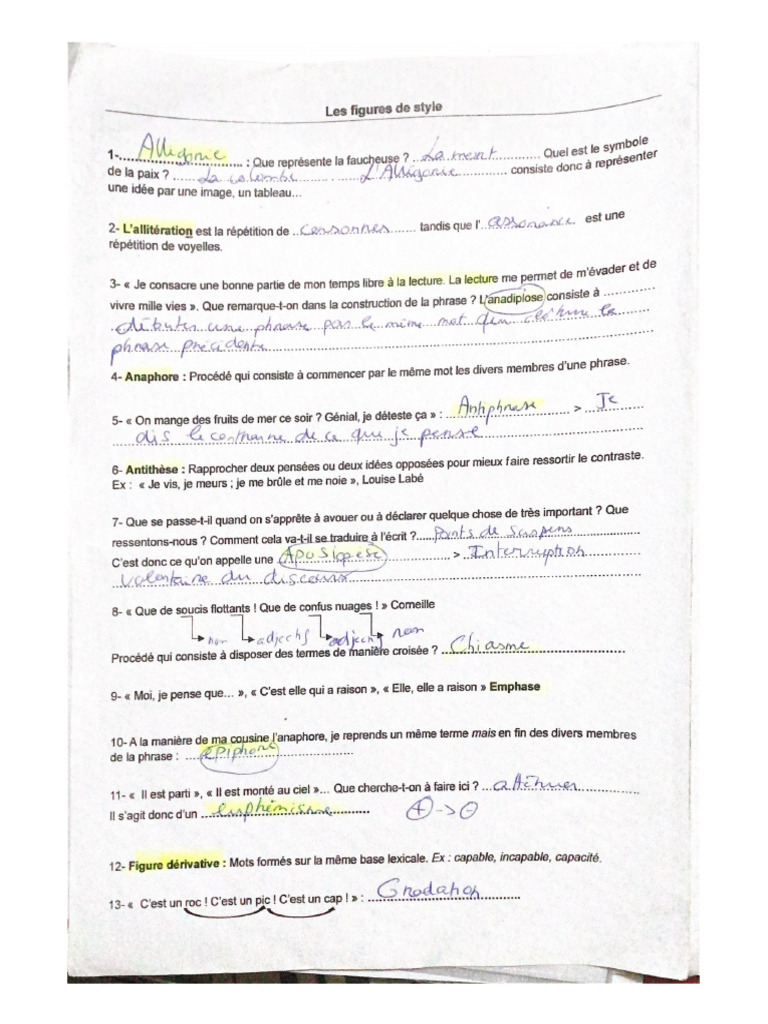 Les figures de style
1-.... Allégorie .... : Que représente la faucheuse ? .. La mort .... Quel est le symbole
de la paix ? .... La colombe .... L'Allégorie .... consiste donc à représenter
une idée par une image, un tableau...
2- L'allitération est la répétition de .. consonnes .... tandis que l' assonance est une
répétition de voyelles.
3- « Je consacre une bonne partie de mon temps libre à la lecture. La lecture me permet de m'évader et de
vivre mille vies ». Que remarque-t-on dans la construction de la phrase ? L'anadiplose consiste à ....
débuter une phrase par le même mot qui clôture la
phrase précédente
4- Anaphore : Procédé qui consiste à commencer par le même mot les divers membres d'une phrase.
5- « On mange des fruits de mer ce soir ? Génial, je déteste ça » : .. Antiphrase .... > .. Je ....
dis le contraire de ce que je pense
6- Antithèse : Rapprocher deux pensées ou deux idées opposées pour mieux faire ressortir le contraste.
Ex : « Je vis, je meurs ; je me brûle et me noie », Louise Labé
7- Que se passe-t-il quand on s'apprête à avouer ou à déclarer quelque chose de très important ? Que
ressentons-nous ? Comment cela va-t-il se traduire à l'écrit ?.... Points de suspens
C'est donc ce qu'on appelle une .. Aposiopèse .... > .. Interruption ....
volontaire du discours
8- « Que de soucis flottants ! Que de confus nuages ! » Corneille
nom adjectif adjectif nom
Procédé qui consiste à disposer des termes de manière croisée ? .. Chiasme ....
9- « Moi, je pense que... », « C'est elle qui a raison », « Elle, elle a raison » Emphase
10- A la manière de ma cousine l'anaphore, je reprends un même terme mais en fin des divers membres
de la phrase : .... épiphore ....
11- « Il est parti », « Il est monté au ciel »... Que cherche-t-on à faire ici ? .. atténuer ....
Il s'agit donc d'un .. euphémisme .... + -> -
12- Figure dérivative : Mots formés sur la même base lexicale. Ex : capable, incapable, capacité.
13- « C'est un roc ! C'est un pic ! C'est un cap ! » : .. Gradation ....